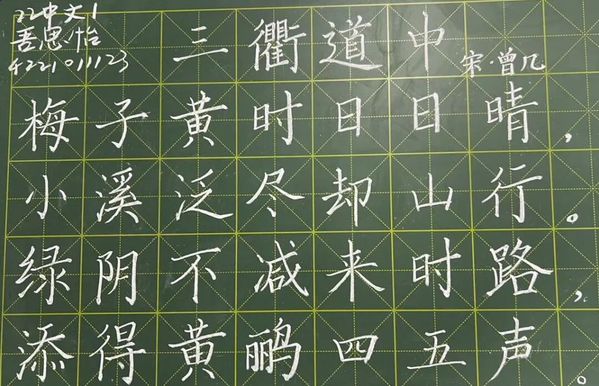 22中文1
吾思怡
4221011123
三衢道中
宋·曾几
梅子黄时日日晴，
小溪泛尽却山行。
绿阴不减来时路，
添得黄鹂四五声。